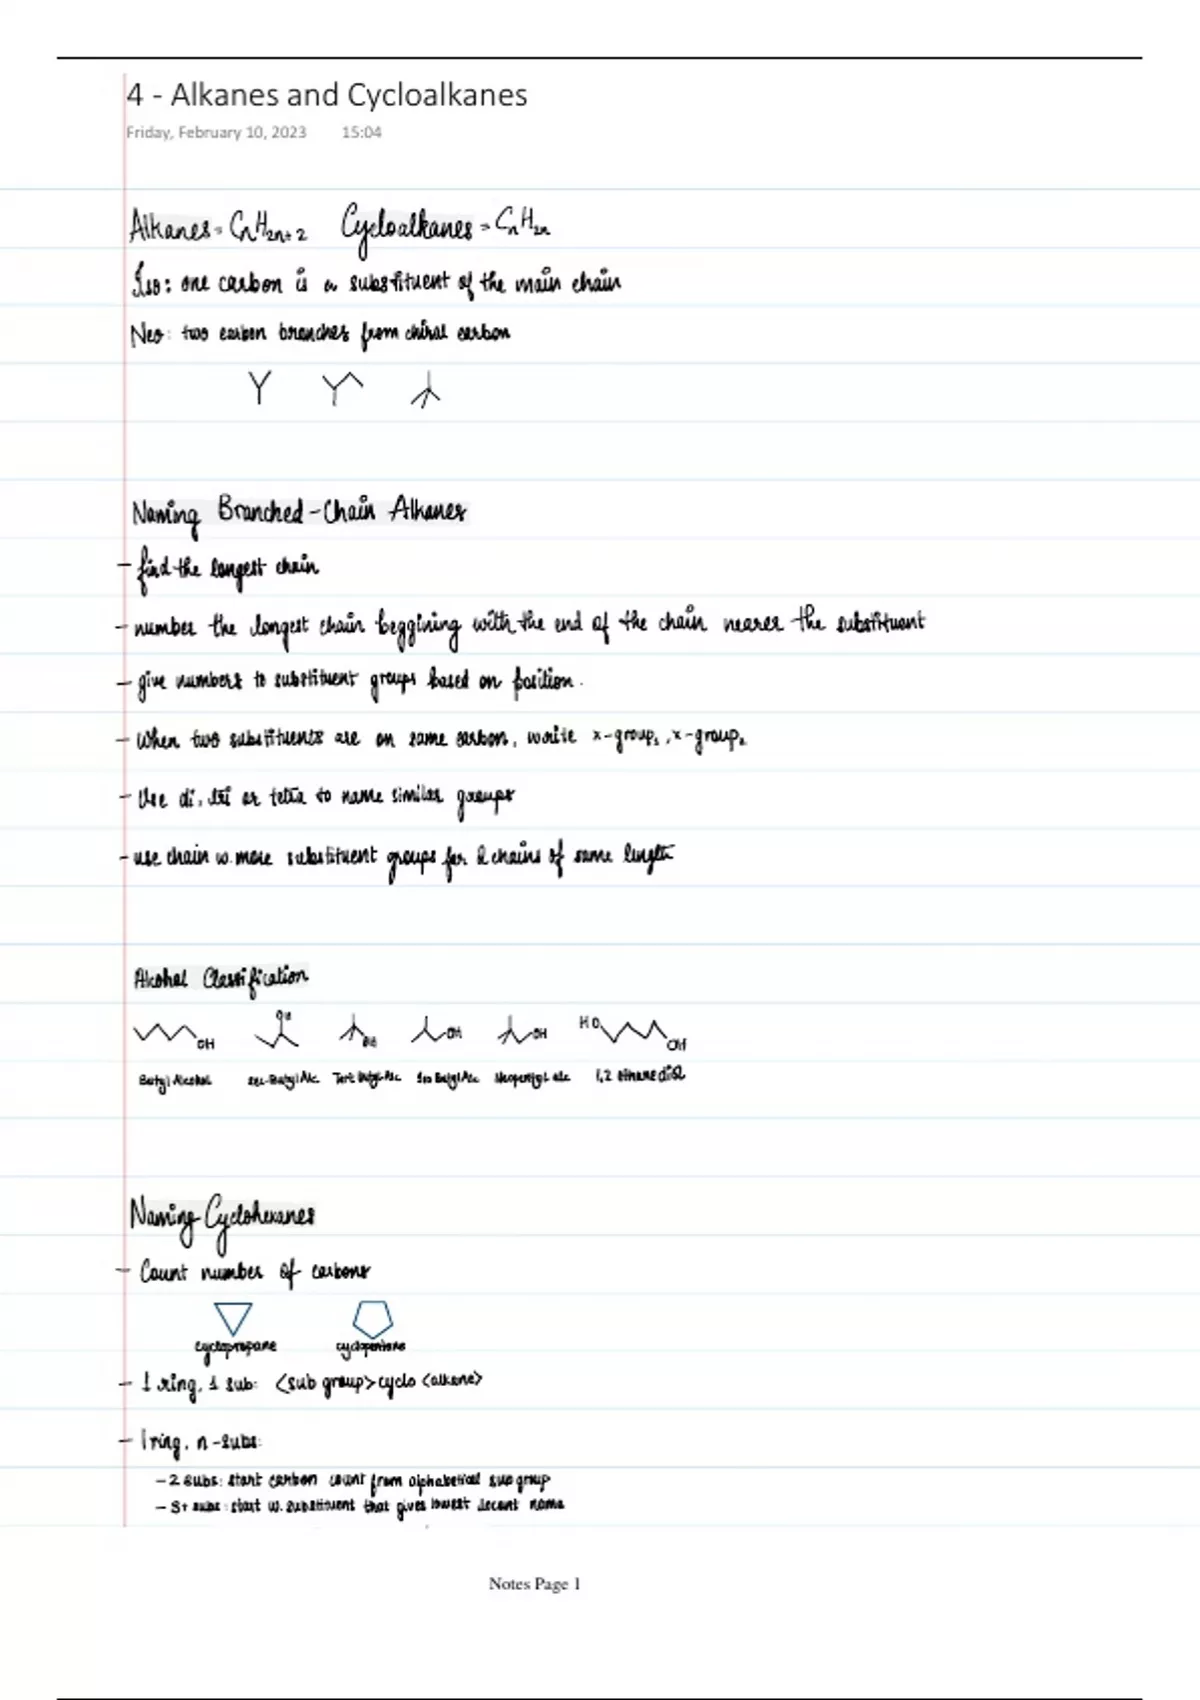 4 - Alkanes and Cycloalkanes
Friday, February 10, 2023 15:04
Alkanes = CnH2n+2 Cycloalkanes = CnH2n
Iso: one carbon is a substituent of the main chain
Neo: two carbon branches from chiral carbon
Naming Branched-Chain Alkanes
- find the longest chain
- number the longest chain beggining with the end of the chain nearer the substituent
- give numbers to substituent groups based on position.
- When two substituents are on same carbon, write x-group1, x-group2
- Use di, tri or tetra to name similar groups
- use chain w. more substituent groups for 2 chains of same length
Alcohol Classification
OH OH OH OH OH HO OH
Butyl Alcohol sec-Butyl Alc. Tert Butyl Alc Iso Butyl Alc Neopentyl alc 1,2 ethanediol
Naming Cyclohexanes
- Count number of carbons
cyclopropane cyclopentane
- 1 ring, 1 sub: <sub group>cyclo<alkane>
- 1 ring, n-subs:
- 2 subs: start carbon count from alphabetical sub group
- 3+ subs: start w. substituent that gives lowest decent name
Notes Page 1